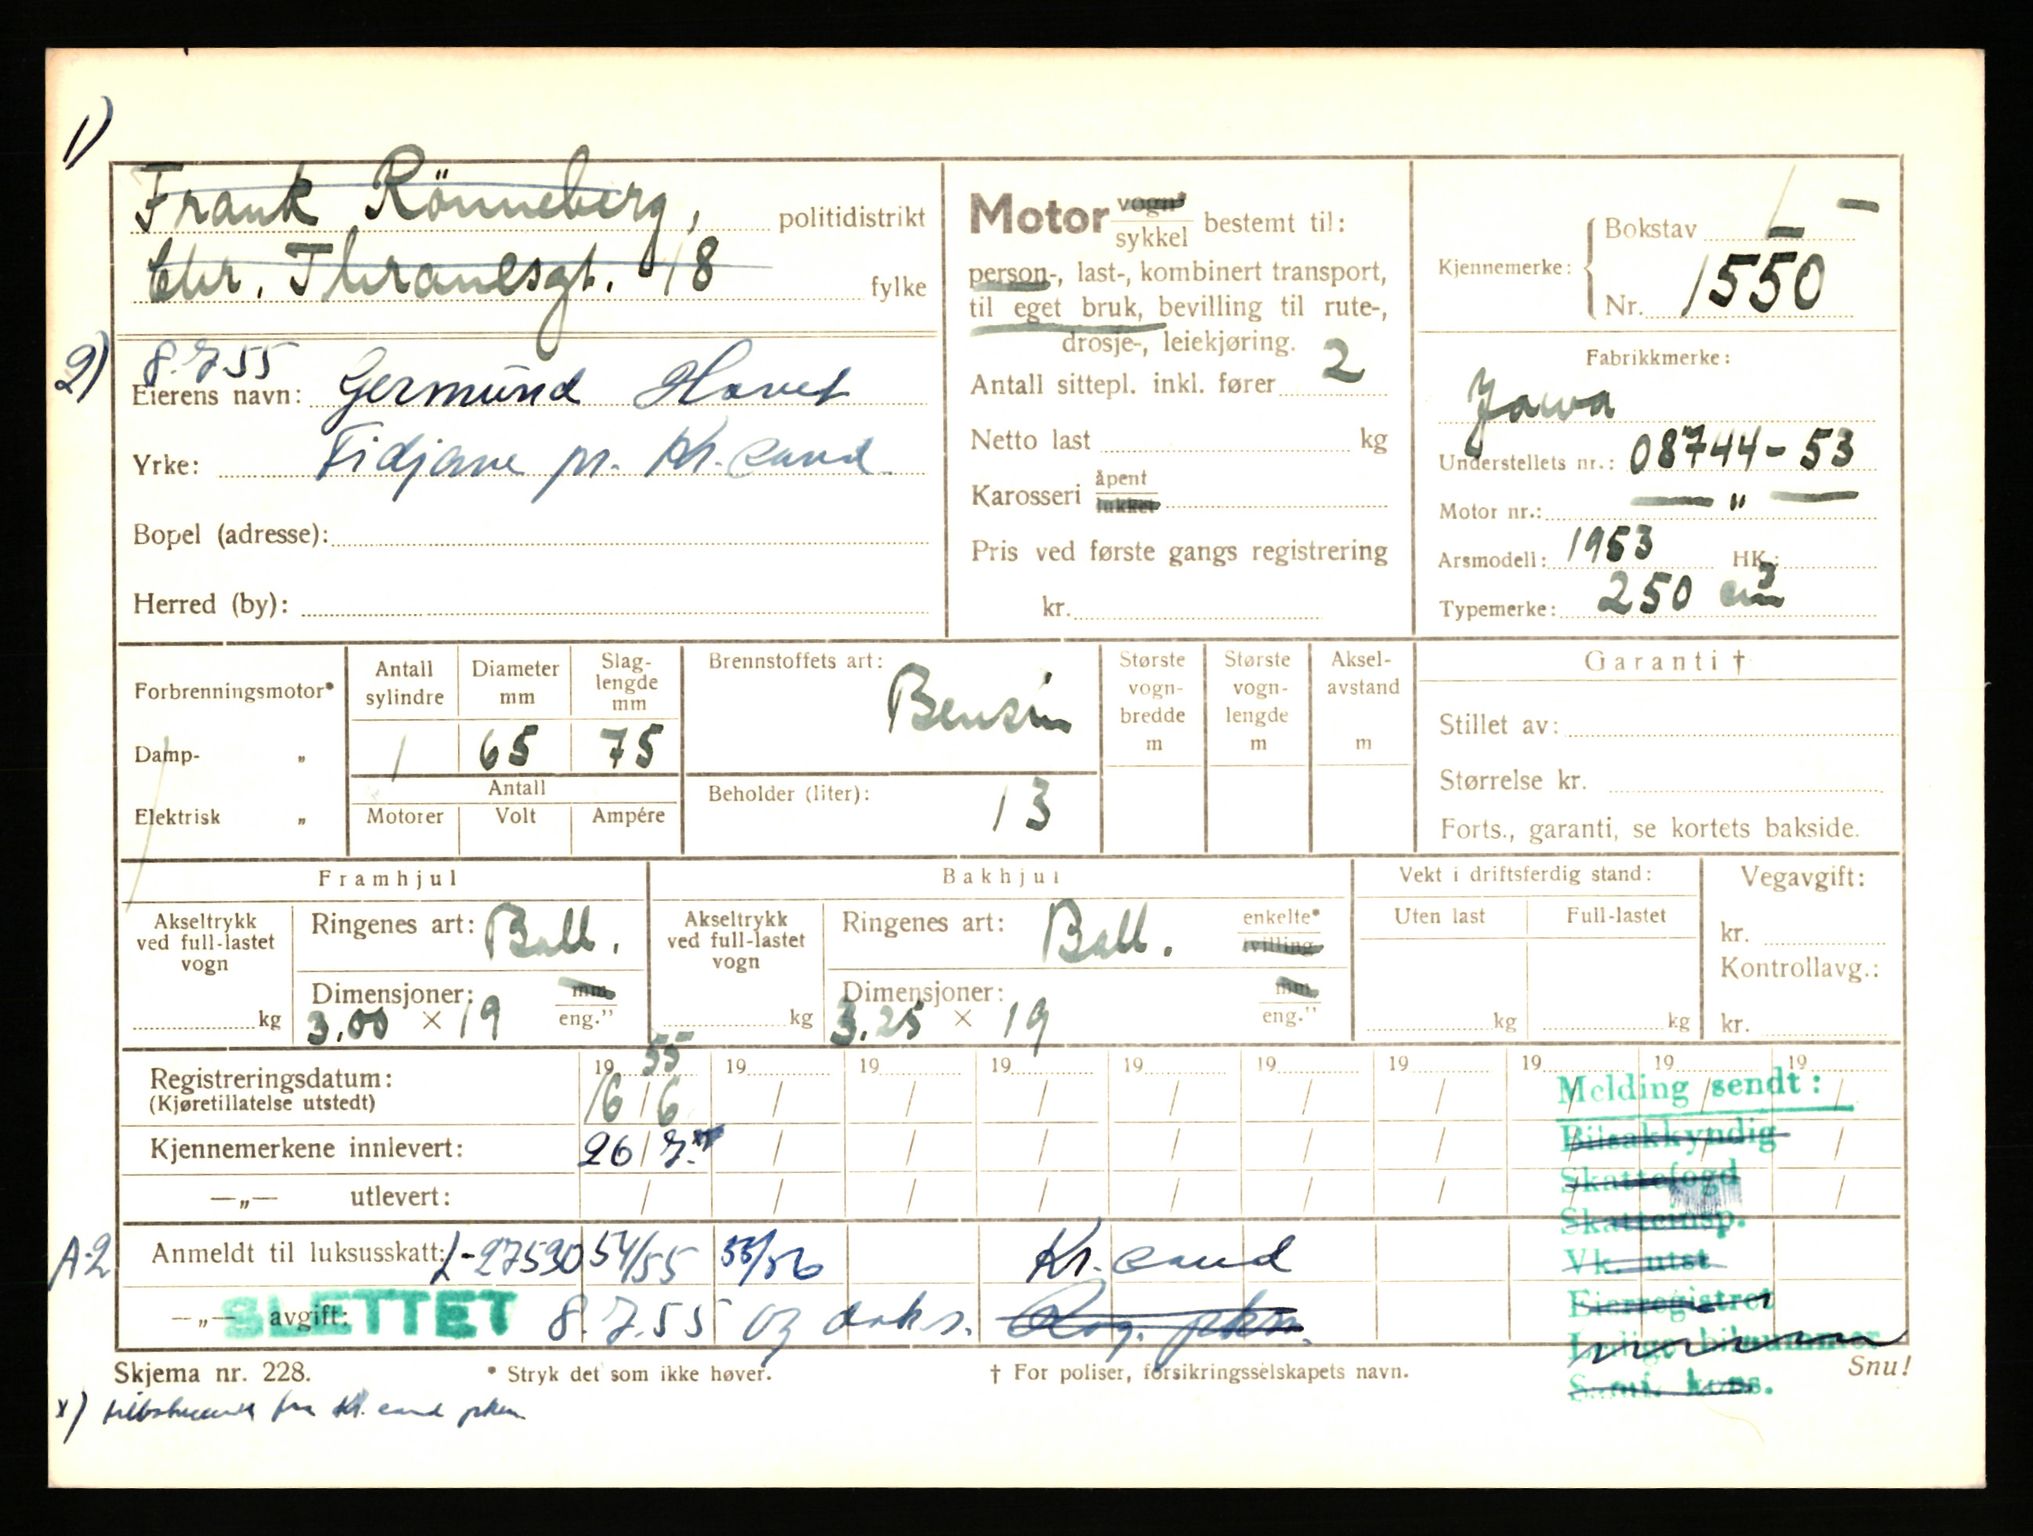 1)
Frank Rönneberg, politidistrikt
Chr. Thranesgt. 48 fylke
2) 8.7.55
Eierens navn: Germund Hovet
Yrke: Fidjane pr. Kr.sand
Bopel (adresse):
Herred (by):
Motor vogn* sykkel bestemt til:
person-, last-, kombinert transport,
til eget bruk, bevilling til rute-,
drosje-, leiekjøring.
Antall sittepl. inkl. fører 2
Netto last kg
Karosseri åpent lukket
Pris ved første gangs registrering
kr.
Kjennemerke: Bokstav —
Nr. 1550
Fabrikkmerke:
Jawa
Understellets nr.: 08744-53
Motor nr.: — " —
Arsmodell: 1953 HK.:
Typemerke: 250 cm3
Forbrenningsmotor*
Damp- „
Elektrisk „
Antall sylindre 1
Diameter mm 65
Slag-lengde mm 75
Antall
Motorer Volt Ampére
Brennstoffets art: Bensin
Beholder (liter): 13
Største vogn-bredde m
Største vogn-lengde m
Aksel-avstand m
Garanti †
Stillet av:
Størrelse kr.
Forts., garanti, se kortets bakside.
Framhjul
Akseltrykk ved full-lastet vogn kg
Ringenes art: Ball.
Dimensjoner: mm
3.00 × 19 eng."
Bakhjul
Akseltrykk ved full-lastet vogn kg
Ringenes art: Ball. enkelte* tvilling
Dimensjoner: mm
3.25 × 19 eng."
Vekt i driftsferdig stand:
Uten last Full-lastet
kg kg
Vegavgift:
kr.
Kontrollavg.:
kr.
19 55 19 19 19 19 19 19 19 19 19
Registreringsdatum: 16/6
(Kjøretillatelse utstedt)
Kjennemerkene innlevert: 26/7
—„— utlevert:
A-2 Anmeldt til luksusskatt: L-27530 54/55 55/56 Kr.sand
—„— avgift: SLETTET 8.7.55 og doks. Rog. pkm.
Melding sendt:
Bilsakkyndig
Skattefogd
Skatteinsp.
Vk. utst
Eierregistret
Ledige bilnummer
Saml. kons.
Skjema nr. 228.
* Stryk det som ikke høver.
† For poliser, forsikringsselskapets navn.
Snu!
x) fra Kr.sand pkm